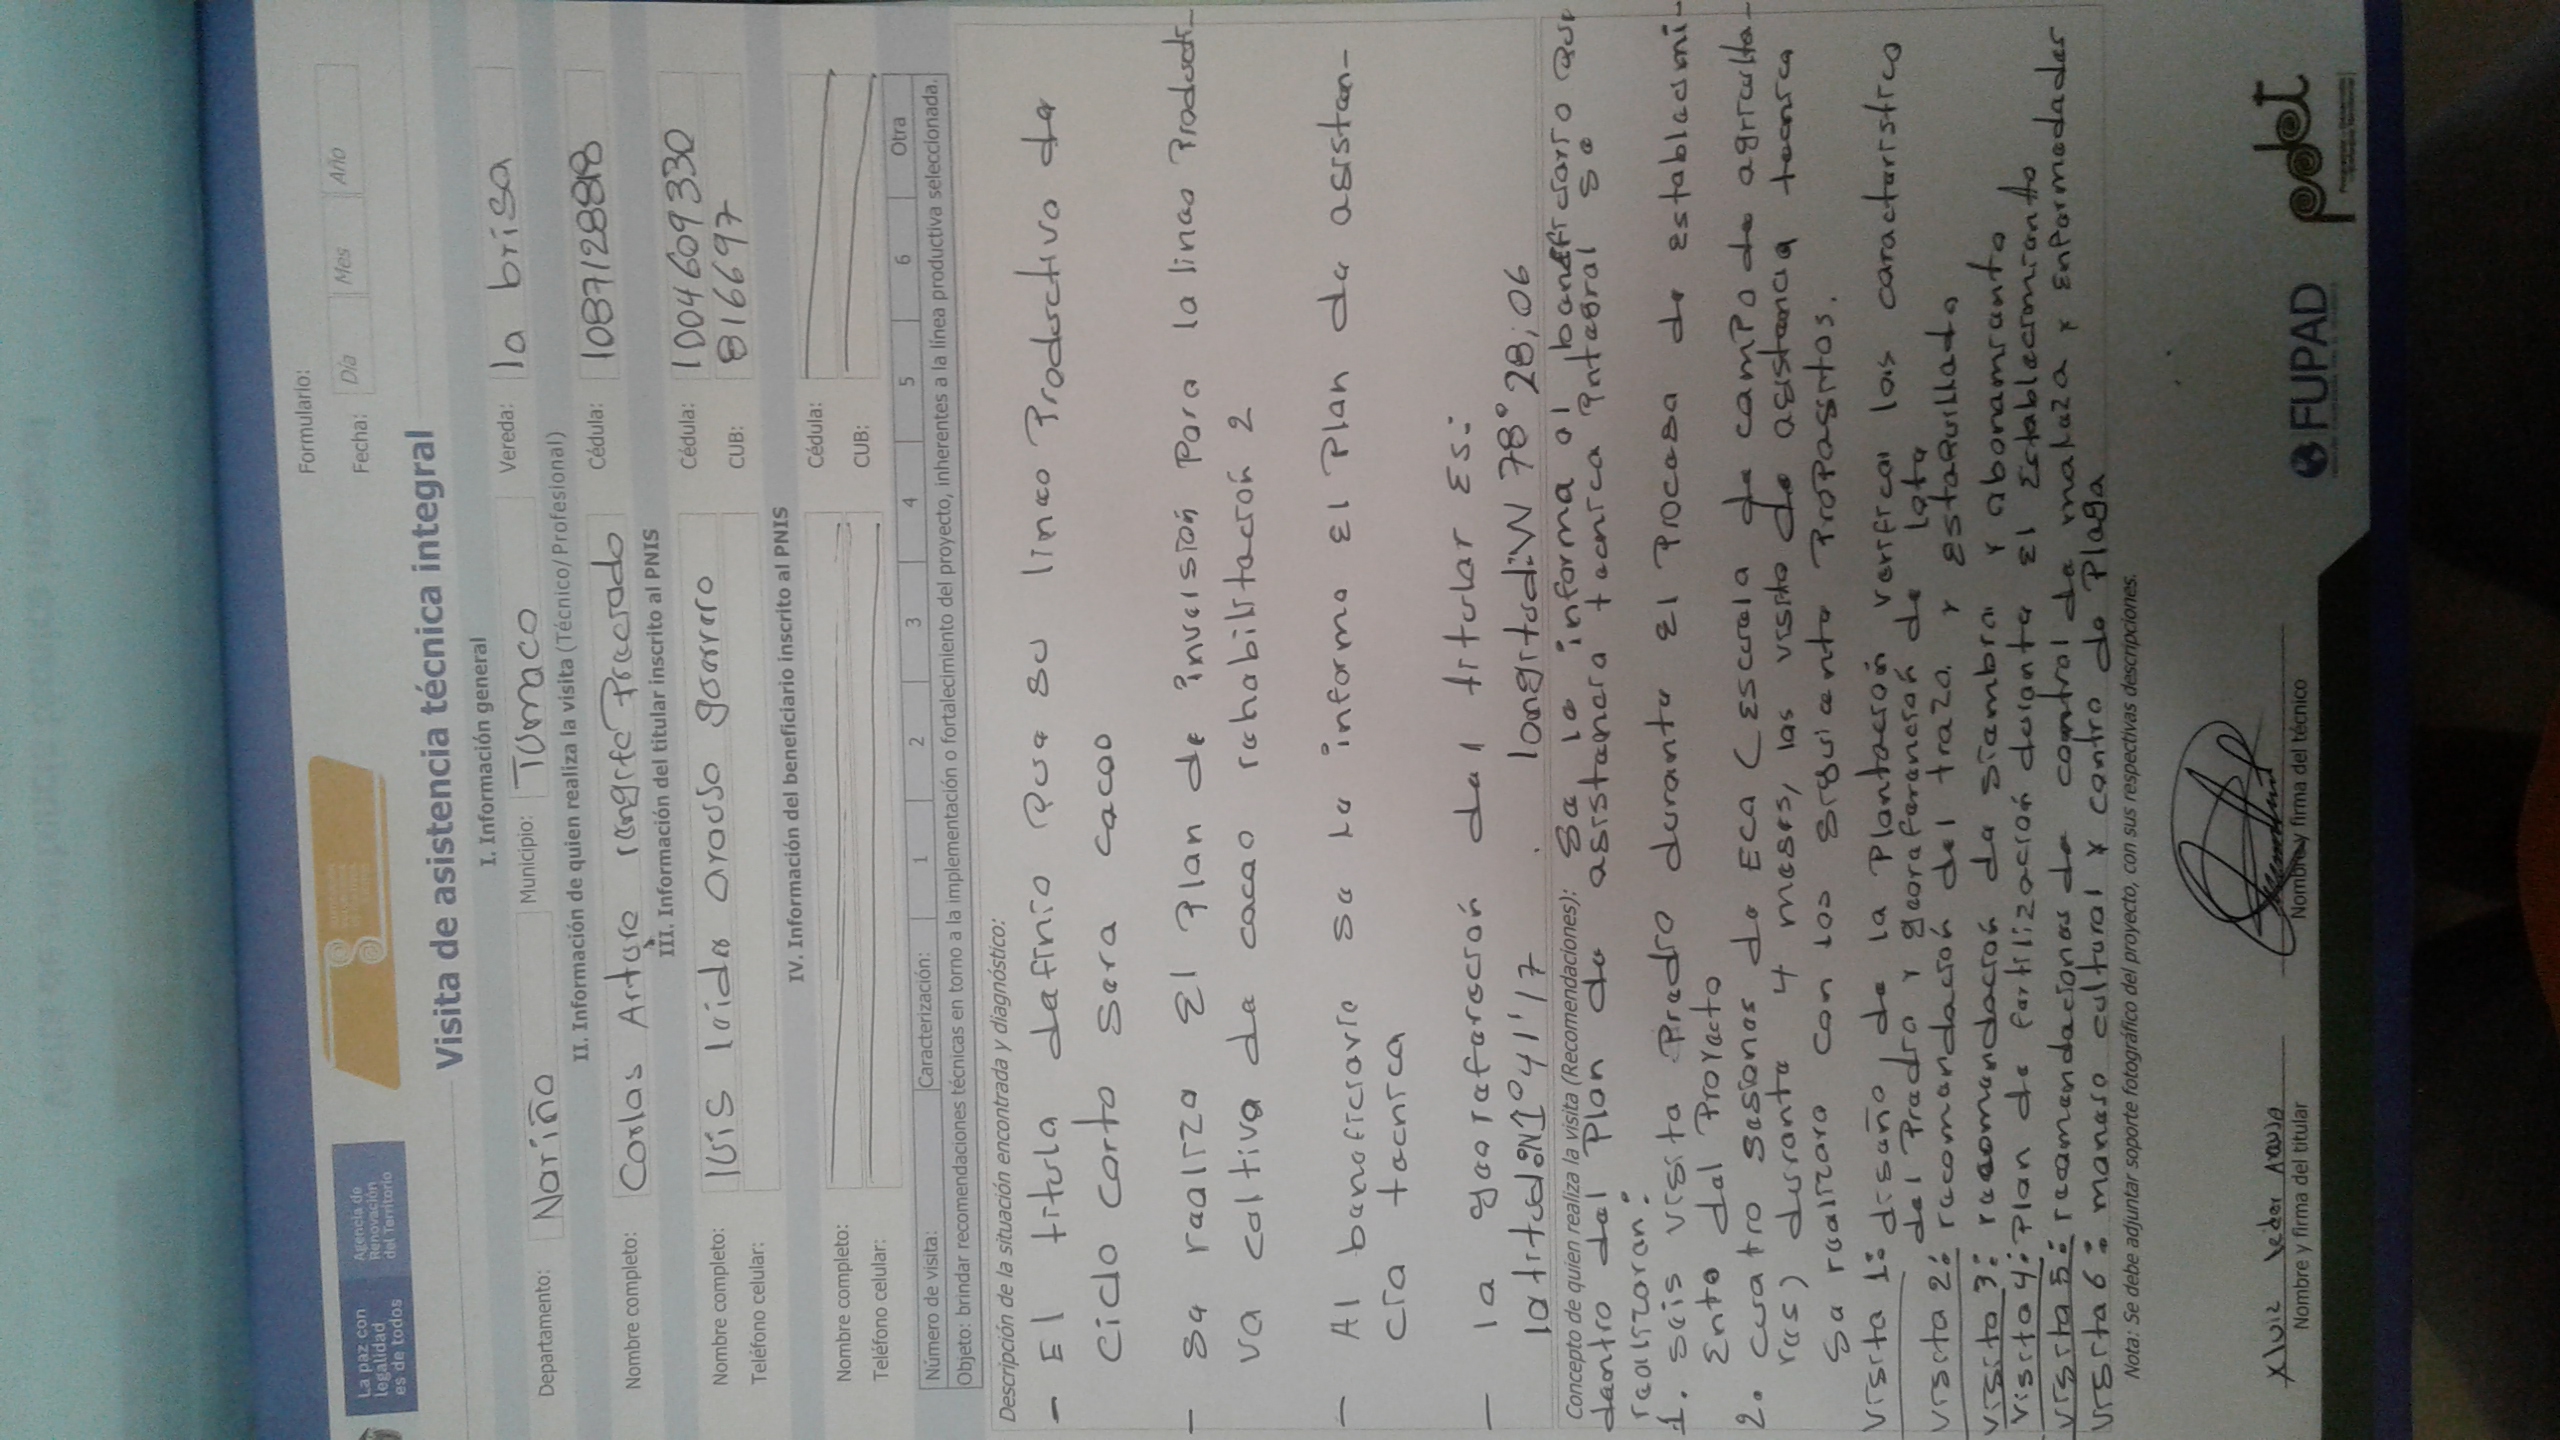 La paz con
legalidad
es de todos
Agencia de
Renovación
del Territorio
Formulario:
Fecha: Día Mes Año
Visita de asistencia técnica integral
I. Información general
Departamento: Nariño Municipio: Tumaco Vereda: la brisa
II. Información de quien realiza la visita (Técnico/ Profesional)
Nombre completo: Carlos Arturo rengifo Preciado Cédula: 1087128898
III. Información del titular inscrito al PNIS
Nombre completo: luis leider arauso guerrero Cédula: 1004609330
Teléfono celular: CUB: 816697
IV. Información del beneficiario inscrito al PNIS
Nombre completo: Cédula:
Teléfono celular: CUB:
Número de visita: Caracterización: 1 2 3 4 5 6 Otra
Objeto: brindar recomendaciones técnicas en torno a la implementación o fortalecimiento del proyecto, inherentes a la línea productiva seleccionada.
Descripción de la situación encontrada y diagnóstico:
- El titula definio que su linea Productivo de
Ciclo corto sera cacao
- se realizo El Plan de invelsión Para la linas Producti-
va caltiva de cacao rehabilitación 2
- Al beneficiario se le informo El Plan de asisten-
cia tecnica
- la georeferesción del titular Es:
latitud:N1°41'17 longitud:W 78°28,06
Concepto de quien realiza la visita (Recomendaciones): se le informa al beneficiario que
dentro del Plan de asistencia tecnica integral se
realizaran:
1. seis visita Predio durante el Procesa de establecimi-
Ento dal Proyecto
2. cuatro sesiones de ECA (escuela de campo de agriculto-
res) durante 4 meses, las visita de asistencia tecnica
se realizara con los siguiente Propositos.
visita 1: diseño de la Plantación verificar las caracteristica
del Predio y georeferención de lote
visita 2: recomendación del trazo. y estaquillado
visita 3: recomendación de siembra y abonamiento
visita 4: Plan de fertilización durante el establecimiento
visita 5: recomendaciones de control de maleza y Enfermedades
visita 6: maneso cultural y contro de Plaga
Nota: Se debe adjuntar soporte fotográfico del proyecto, con sus respectivas descripciones.
Xluiz leider Arauso
Nombre y firma del titular
Nombre y firma del técnico
FUPAD
pdet